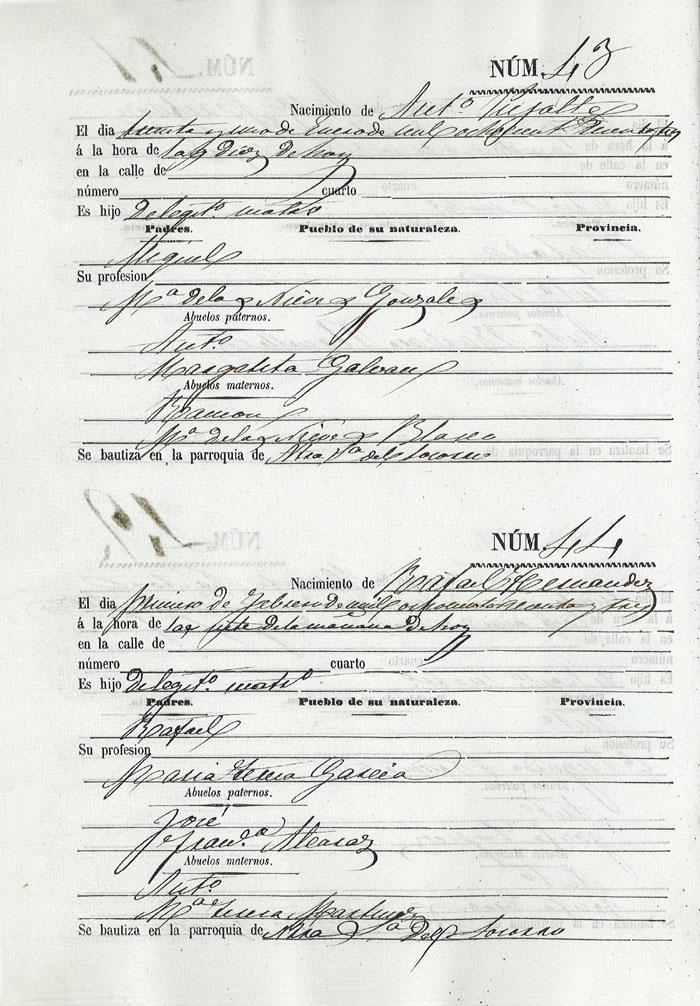 NÚM. 43
Nacimiento de Antº
El dia treinta y uno de Enero de mil ochocient. Sesenta y tres
á la hora de las diez de hoy
en la calle de
número cuarto
Es hijo de legitº matrº
Padres. Pueblo de su naturaleza. Provincia.
Miguel
Su profesion
Mª de las Nieves Gonzalez
Abuelos paternos.
Antº
Margarita Galvañ
Abuelos maternos.
Ramon
Mª de las Nieves Blasco
Se bautiza en la parroquia de Ntra Sª del Socorro
NÚM. 44
Nacimiento de Rafael Hernandez
El dia primero de Febrero de mil ochocientos Sesenta y tres
á la hora de las siete de la mañana de hoy
en la calle de
número cuarto
Es hijo de legitº matrº
Padres. Pueblo de su naturaleza. Provincia.
Rafael
Su profesion
Maria Teresa Garcia
Abuelos paternos.
José
Franª Alcaraz
Abuelos maternos.
Antº
Mª Teresa Martinez
Se bautiza en la parroquia de Ntra Sª Del Socorro